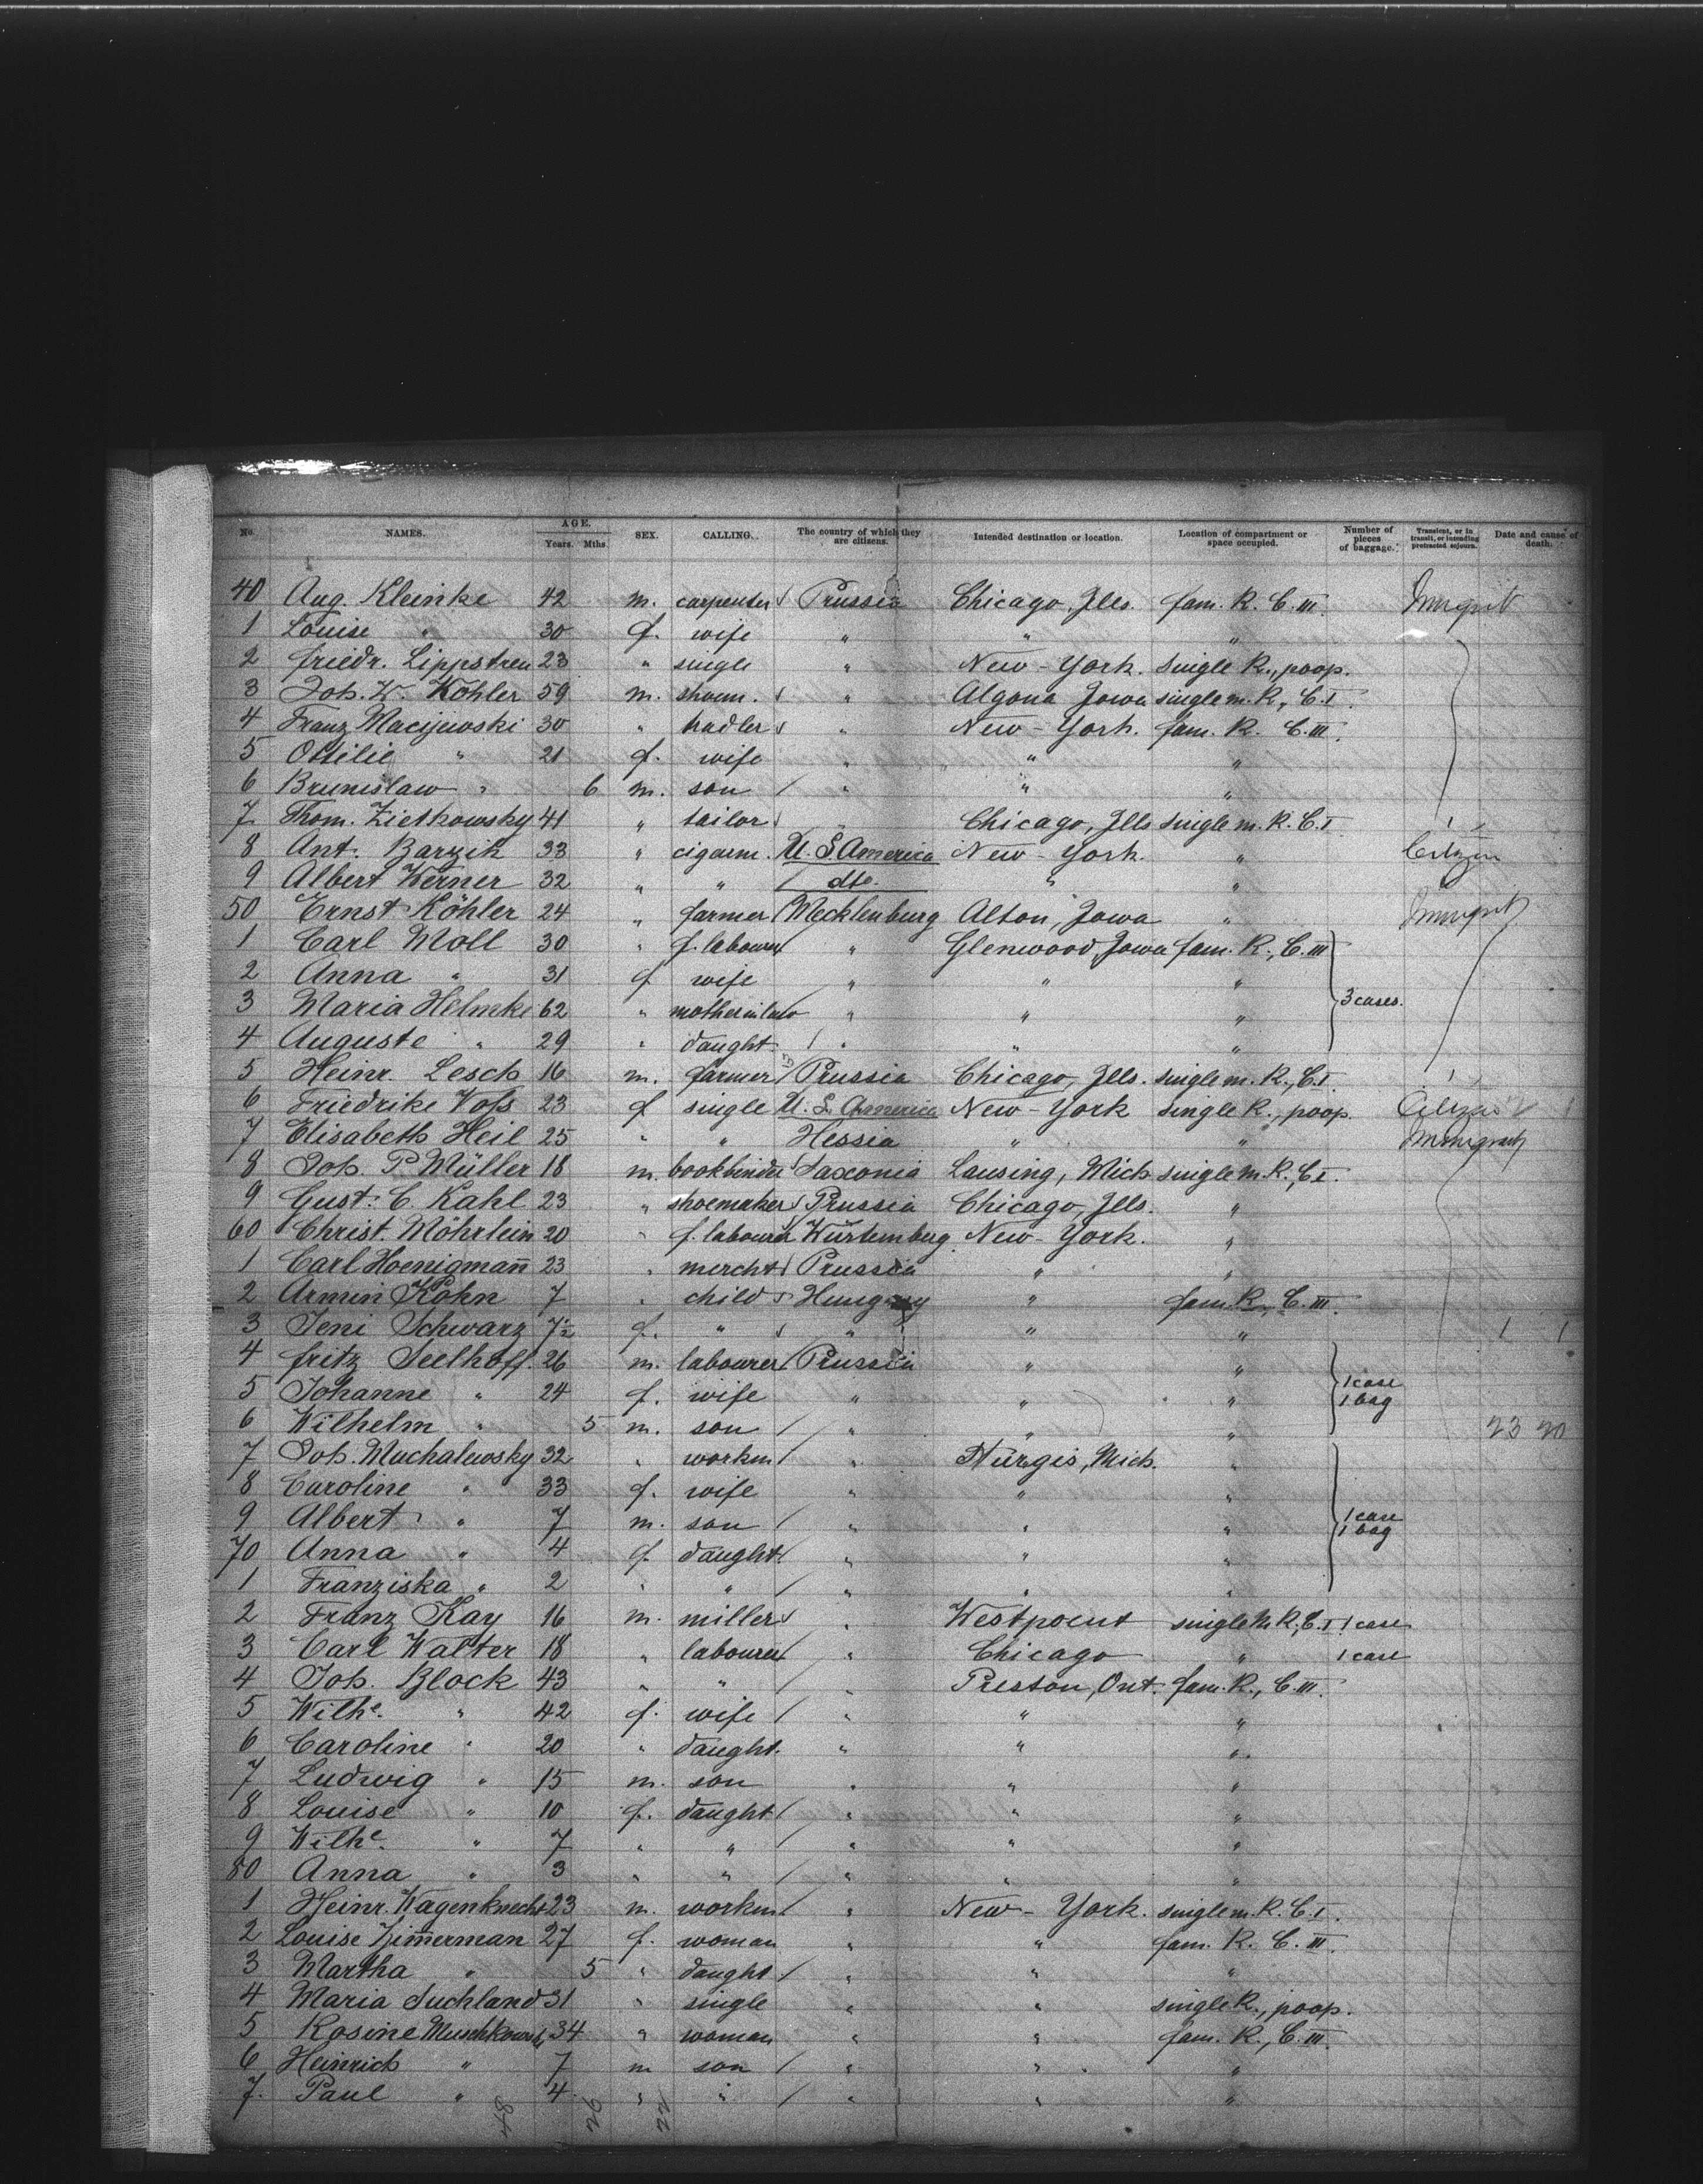 No. NAMES. AGE. Years. Mths. SEX. CALLING. The country of which they are citizens. Intended destination or location. Location of compartment or space occupied. Number of pieces of baggage. Transient, or in transit, or intending protracted sojourn. Date and cause of death.
40 Aug. Kleinke 42 m. carpenter Prussia Chicago, Ills. fam. R. C. III.
1 Louise " 30 f. wife " " "
2 Friedr. Lippstreu 23 " single " New-York. single R., poop.
3 Joh. W. Köhler 59 m. shoem. " Algona Jowa single m. R., C. I.
4 Franz Macijewski 30 " " New-York. fam. R. C. III.
5 Ottilie " 21 f. wife " " "
6 Brunislaw " 6 m. son " " "
7 Thom. Zietkowsky 41 " tailor " Chicago, Ills single m. R. C. I
8 Ant. Barzik 33 " cigarm. U. S. America New-York. " Citizen
9 Albert Werner 32 " " dto. " "
50 Ernst Köhler 24 " farmer Mecklenburg Alton, Jowa "
1 Carl Moll 30 " f. labourer " Glenwood, Jowa fam. R., C. III
2 Anna " 31 f. wife " " "
3 Maria Helmke 62 " mother in law " " " 3 cases.
4 Auguste " 29 " daught. " " "
5 Heinr. Lesch 16 m. farmer Prussia Chicago, Ills. single m. R., C. I.
6 Friedrike Voſs 23 f single U. S. America New-York single R., poop.
7 Elisabeth Heil 25 " " Hessia " "
8 Joh. P. Müller 18 m. bookbinder Saxonia Lansing, Mich. single m. R., C. I.
9 Gust. C. Kahl 23 " shoemaker Prussia Chicago, Ills. "
60 Christ. Möhrlein 20 " f. labourer Würtemberg New-York. "
1 Carl Hoenigmañ 23 " mercht Prussia " "
2 Armin Kohn 7 " child Hungary " fam. R., C. III.
3 Jeni Schwarz 7½ f. " " " " 1 1
4 Fritz Seelhoff. 26 m. labourer Prussia " "
5 Johanne " 24 f. wife " " " 1 case 1 bag
6 Wilhelm " 5 m. son " " " 23 20
7 Joh. Machalewsky 32 " workm " Sturgis, Mich. "
8 Caroline " 33 f. wife " " "
9 Albert " 7 m. son " " " 1 case 1 bag
70 Anna " 4 f. daught. " " "
1 Franziska " 2 " " " " "
2 Franz Kay 16 m. miller " Westpoint single m R., C. I 1 case
3 Carl Walter 18 " labourer " Chicago " 1 case
4 Joh. Block 43 " " " Preston, Ont. fam. R., C. III.
5 Wilhe. " 42 f. wife " " "
6 Caroline " 20 " daught. " " "
7 Ludwig " 15 m. son " " "
8 Louise " 10 f. daught " " "
9 Wilhe. " 7 " " " " "
80 Anna " 3 " " " " "
1 Heinr. Wagenknecht 23 m. workm " New-York. single m. R. C. I.
2 Louise Zim̄erman 27 f. woman " " fam. R. C. III.
3 Martha " 5 " daught. " " "
4 Maria Suchland 31 " single " " single R., poop.
5 Rosine 34 " woman " " fam. R., C. III.
6 Heinrich " 7 m son " " "
7. Paul " 4 " " " " "